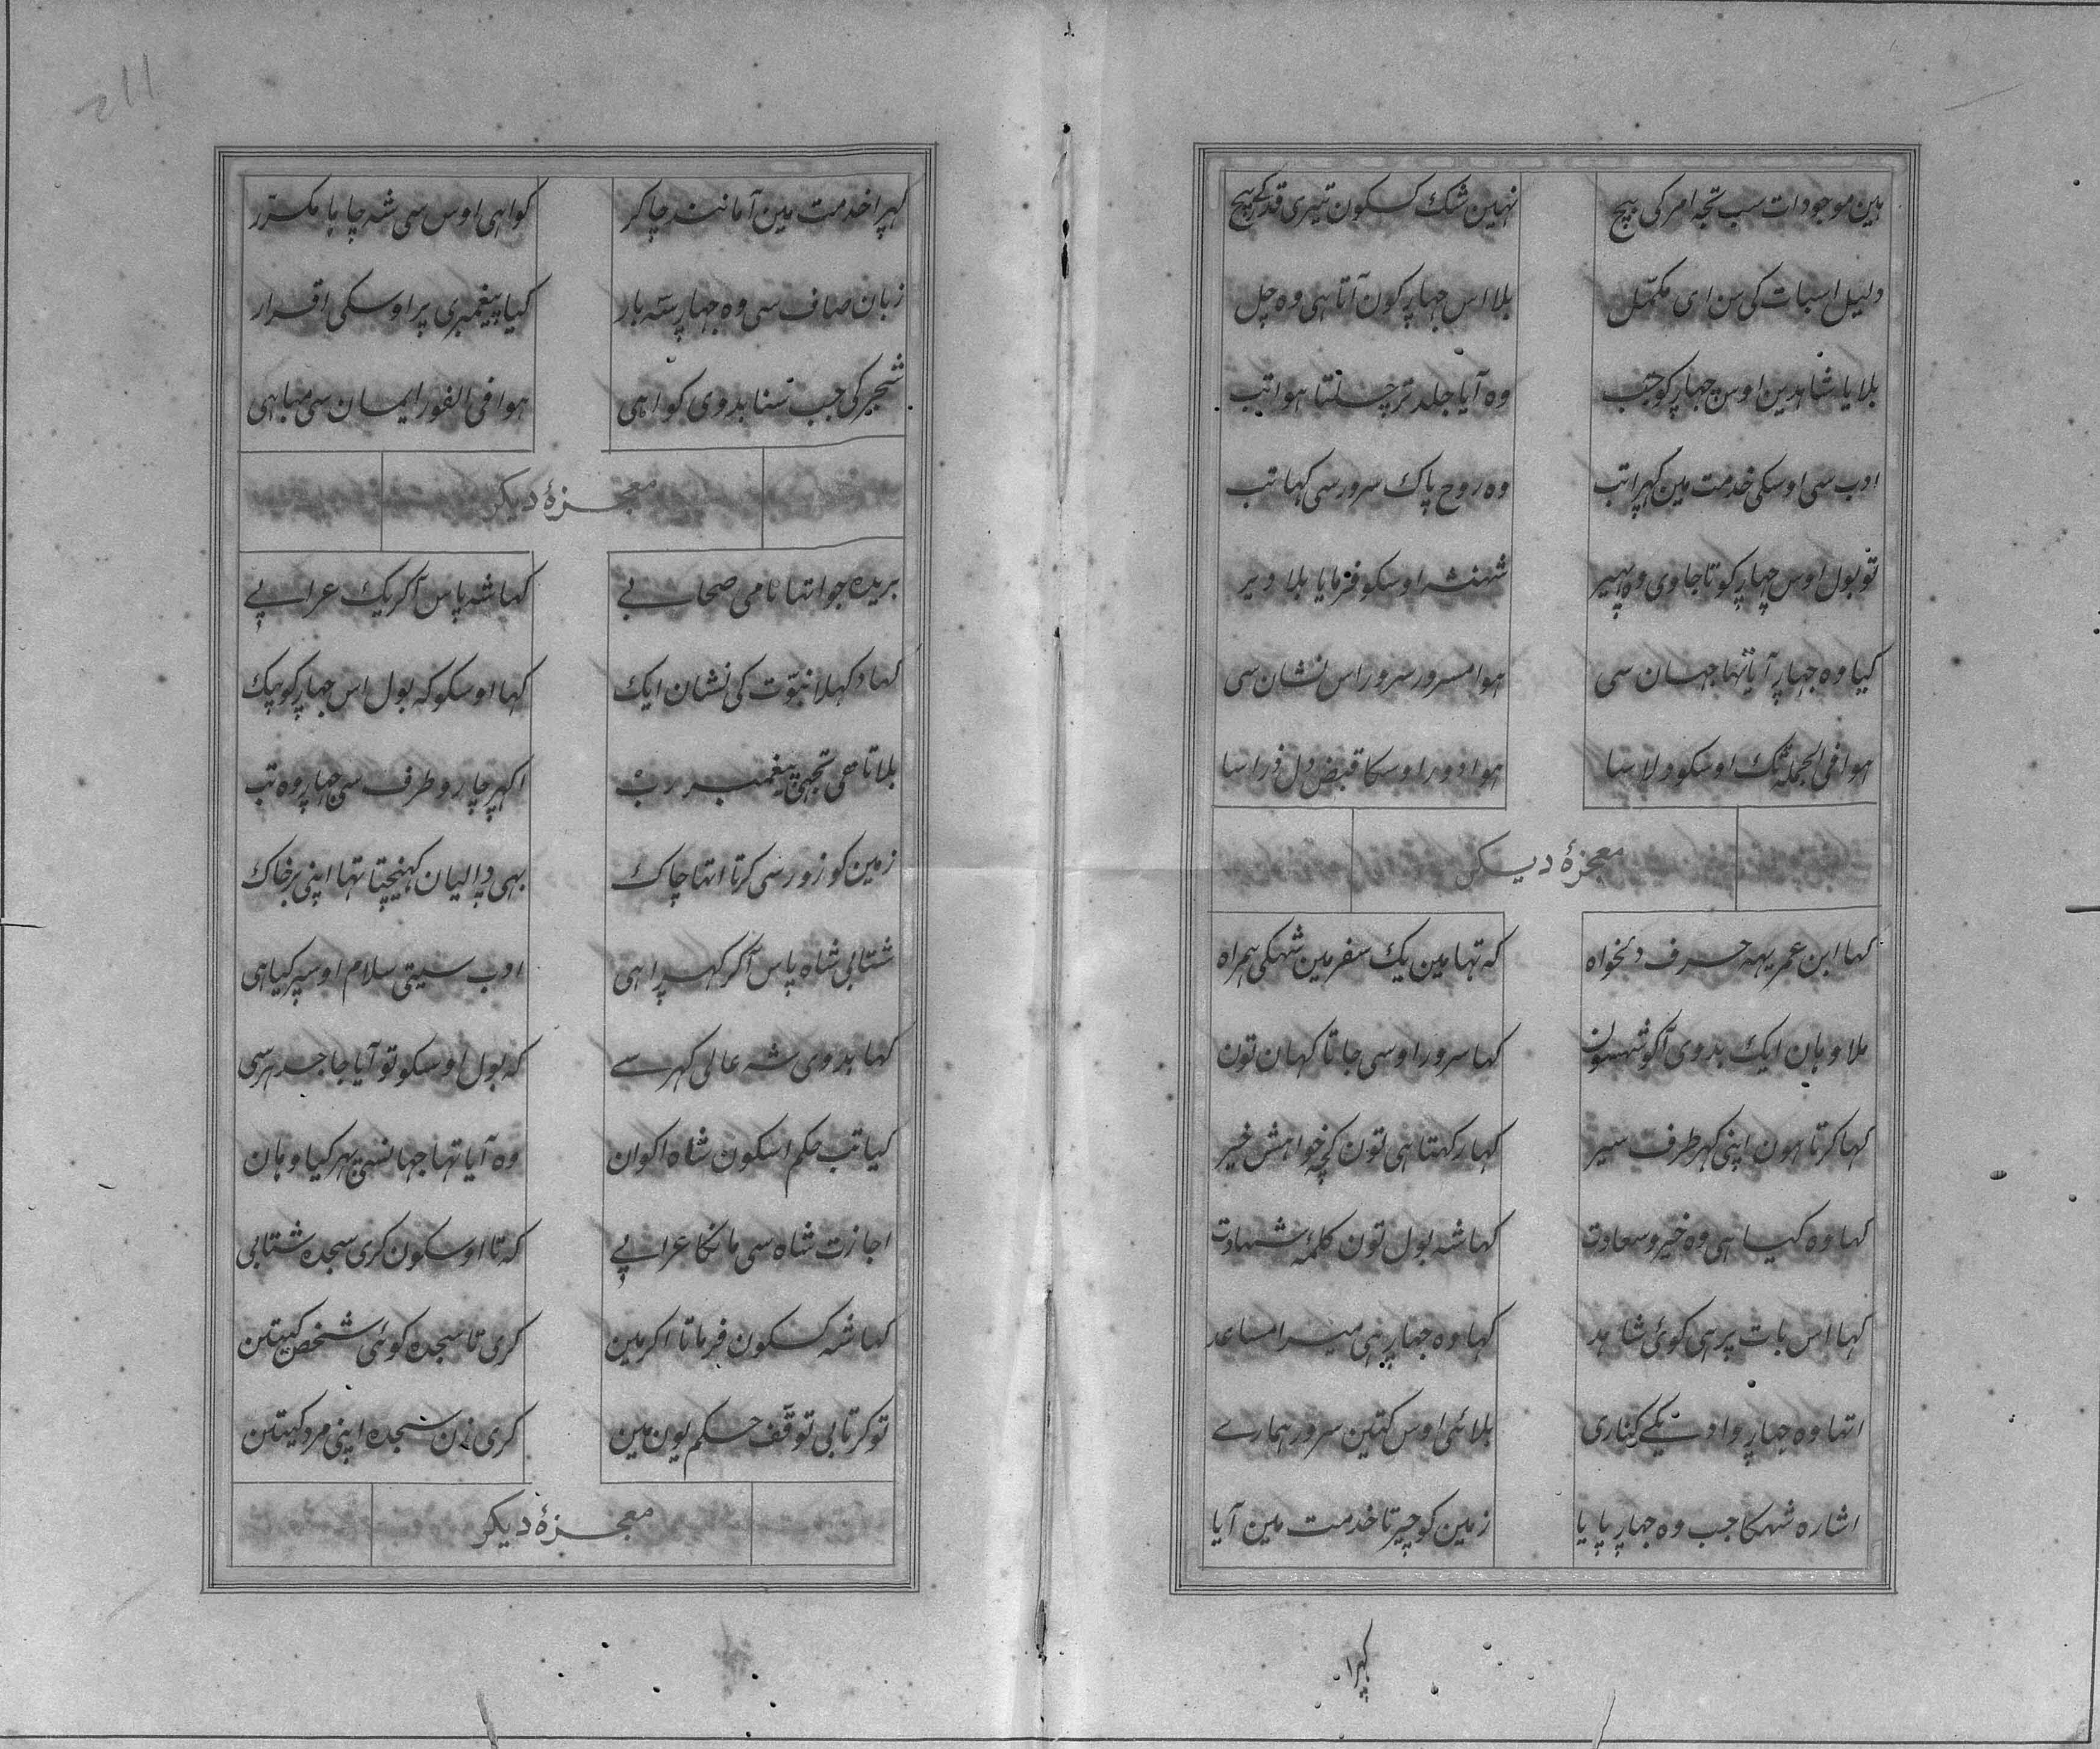 ہین موجودات سب تجہ امر کی بیچ نہین شک کسکون تیری قدر کے بیچ
دلیل اسبات کی سن ای مکمّل بلا اس جہاڑ کون آتا ہی وہ چل
بلایا شاہدین اوس جہاڑ کو جب وہ آیا جلد تر چلتا ہوا تب
ادب سی اوسکی خدمت مین کہڑا تب وہ روح پاک سرور سی کہا تب
تو بول اوس جہاڑ کو تا جاوی وہ پہیر شہنشہ اوسکو فرمایا بلا دیر
کیا وہ جہاڑ آیا تہا جہان سی ہوا مسرور سرور اس نشان سی
ہوا فی الجملہ تک اوسکو دلاسا ہوا دور اوسکا قبض دل ذرا سا
معجزهٔ دیکر
کہا ابن عمر یہہ حرف دلخواہ کہ تہا مین یک سفر مین شہکی ہمراہ
ملا وہان ایک بدوی آکو شہسون کہا سرور اوسی جاتا کہان تون
کہا کرتا ہون اپنی کہر طرف سیر کہا رکہتا ہی تون کچہ خواہش خیر
کہا وہ کیا ہی وہ خیر و سعادت کہا شہ بول تون کلمۂ شہادت
کہا اس بات پر ہی کوئی شاہد کہا وہ جہاڑ ہی میرا مساعد
اتہا وہ جہاڑ وادیکے کناری بلائی اوس کتین سرور ہمارے
اشارہ شہکا جب وہ جہاڑ پایا زمین کو چیرتا خدمت مین آیا
کہڑا
کہڑا خدمت مین آ مانند چاکر کواہی اوس سی شہ چاہا مکرّر
زبان صاف سی وہ جہاڑ ستہ بار کیا پیغمبری پر اوسکی اقرار
شجر کی جب سنا بدوی کواہی ہوا فی الفور ایمان سی مباہی
معجزهٔ دیکر
بریدہ جو اتہا نامی صحابے کہا شہ پاس آکر یک عرابے
کہا دکہلا نبوّت کی نشان ایک کہا اوسکو کہ بول اس جہاڑ کو پیک
بلاتا ہی تجہی پیغمبر رب اکہڑ چارو طرف سی جہاڑ وہ تب
زمین کو زور سی کرتا اتہا چاک بہی ڈالیان کہنیچتا تہا اپنی بر خاک
شتابی شاہ پاس آکر کہڑا ہی ادب سیتی سلام اوسپر کیا ہی
کہا بدوی شہ عالی کہر سے کہ بول اوسکو تو آیا جا جدہر سی
کیا تب حکم اسکون شاہ اکوان وہ آیا تہا جہانسی پہر کیا وہان
اجازت شاہ سی مانکا عرابے کہ تا اوسکون کری سجدہ شتابی
کہا شہ کسکون فرماتا اکر مین کری تا سجدہ کوئی شخص کیتئن
تو کرتا بی توقّف حکم یون مین کری زن سجدہ اپنی مرد کیتئن
معجزهٔ دیکر